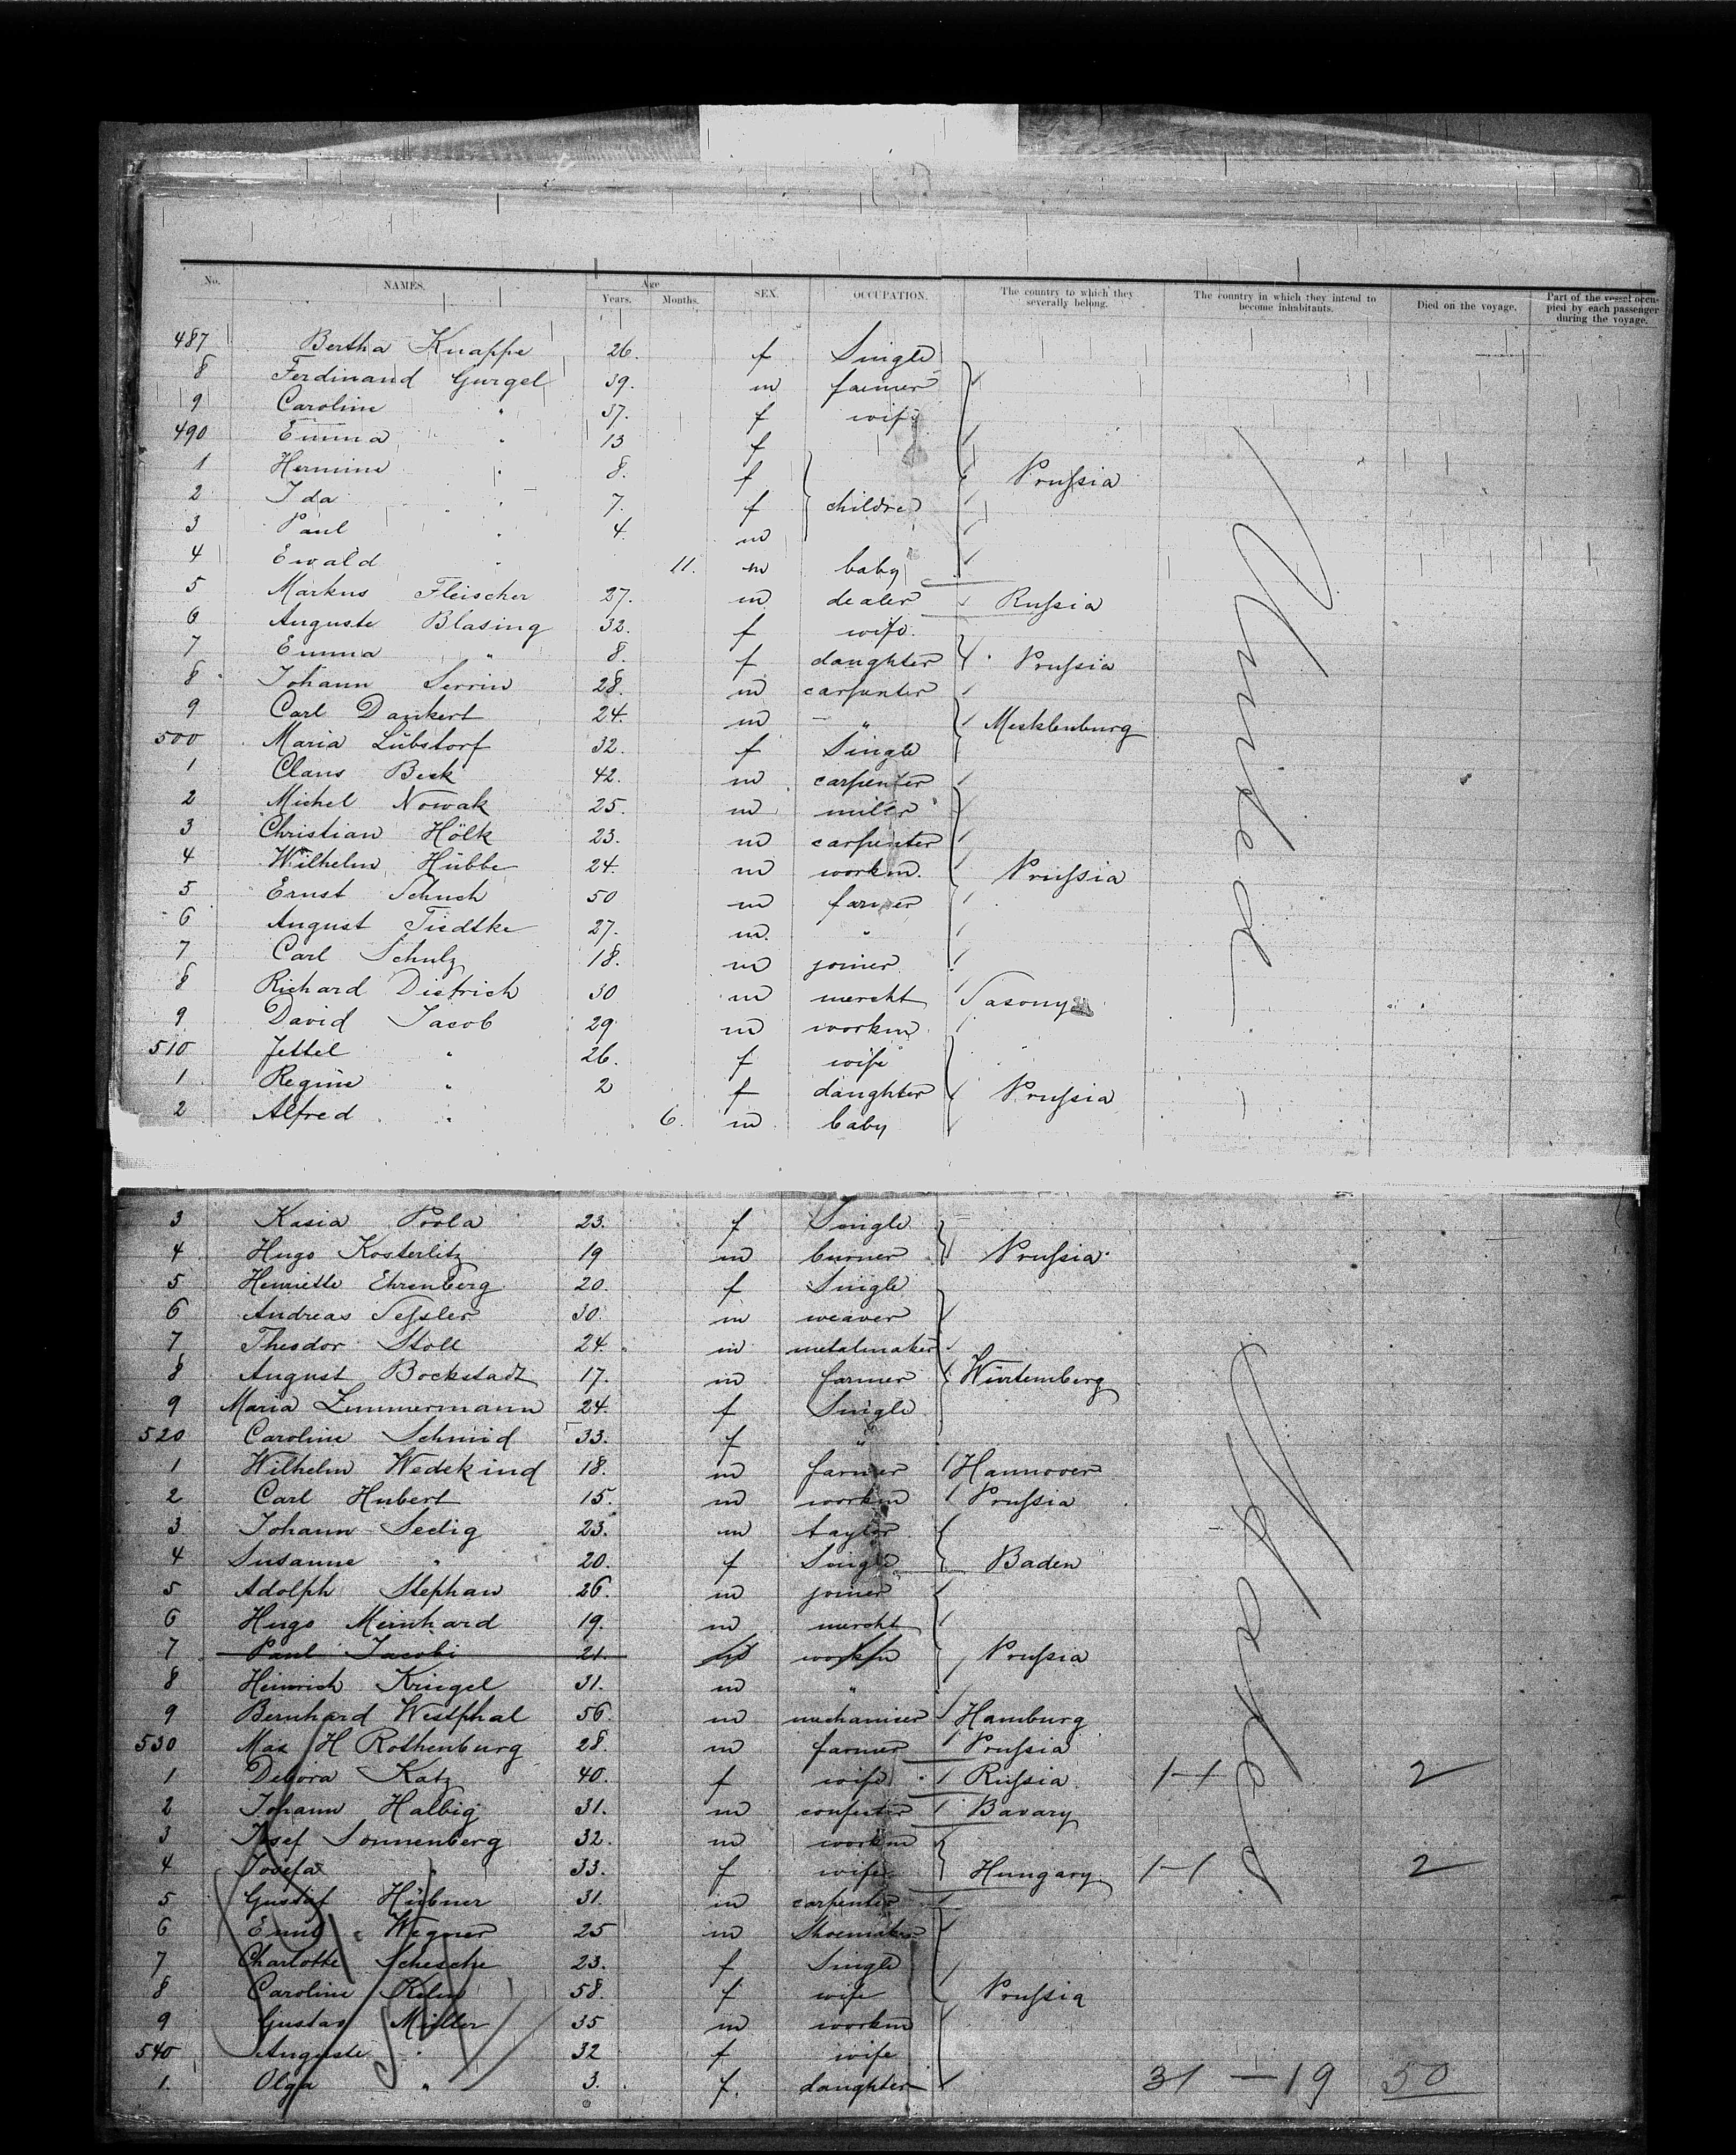 No. NAMES. Age Years. Months. SEX. OCCUPATION. The country to which they severally belong. The country in which they intend to become inhabitants. Died on the voyage. Part of the vessel occupied by each passenger during the voyage.
487 Bertha Knappe 26. f Single
8 Ferdinand Gurgel 39. m farmer
9 Caroline " 37. f wife
490 Emma " 13 f
1 Hermine " 8. f Prussia
2 Ida " 7. f children
3 Paul " 4. m
4 Ewald " 11. m baby
5 Markus Fleischer 27. m dealer Russia
6 Auguste Blasing 32. f wife.
7 Emma " 8. f daughter Prussia
8 Johann Serrin 28. m carpenter
9 Carl Dankert 24. m " Mecklenburg
500 Maria Lübstorf 32. f Single
1 Claus Beck 42. m carpenter
2 Michel Nowak 25. m miller
3 Christian Hölk 23. m carpenter
4 Wilhelm Hübbe 24. m workm. Prussia
5 Ernst Schuch 50 m farmer
6 August Tiedtke 27. m. "
7 Carl Schulz 18. m joiner
8 Richard Dietrich 30 m mercht Saxony
9 David Jacob 29 m workm
510 Jettel " 26. f wife
1 Regine " 2 f daughter Prussia
2 Alfred " 6. m baby
United
3 Kasia Poola 23. f Single
4 Hugo Kosterlitz 19 m burner Prussia
5 Henriette Ehrenberg 20. f Single
6 Andreas Sessler 30. m weaver
7 Theodor Stoll 24. m metalmaker
8 August Bockstadt 17. m farmer Würtemberg
9 Maria Zimmermann 24. f Single
520 Caroline Schmid 33. f "
1 Wilhelm Wedekind 18. m farmer Hannover
2 Carl Hubert 15. m workm Prussia
3 Johann Sedig 23. m taylor
4 Susanne " 20. f Single Baden
5 Adolph Stephan 26. m joiner
6 Hugo Meinhard 19. m mercht
7 Paul Jacobi 21. m workm Prussia
8 Heinrich Kriegel 31. m "
9 Bernhard Westphal 56. m mechaniser Hamburg
530 Max H Rothenburg 28. m farmer Prussia
1 Debora Katz 40. f wife Russia 1-1 2
2 Johann Halbig 31. m Bavary
3 Josef Sonnenberg 32. m workm
4 Josefa " 33. f wife Hungary 1-1 2
5 Gustaf Hübner 31. m carpenter
6 Emil Wegner 25 m Shoemaker
7 Charlotte Schesche 23. f Single
8 Caroline Kelm 58. f wife Prussia
9 Gustav Müller 35 m workm
540 Auguste " 32 f wife
1. Olga " 3. f. daughter 31 - 19 50
States